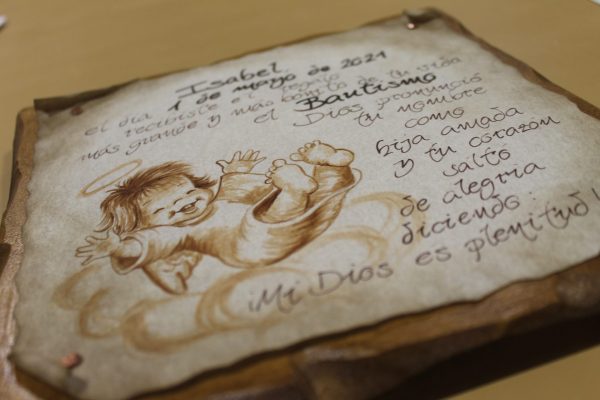 Isabel
1 de mayo de 2021
el día recibiste el regalo
más grande y más bonito de tu vida
el Bautismo
Dios pronunció
tu nombre
como
hija amada
y tu corazón
saltó
de alegria
diciendo:
¡Mi Dios es plenitud!